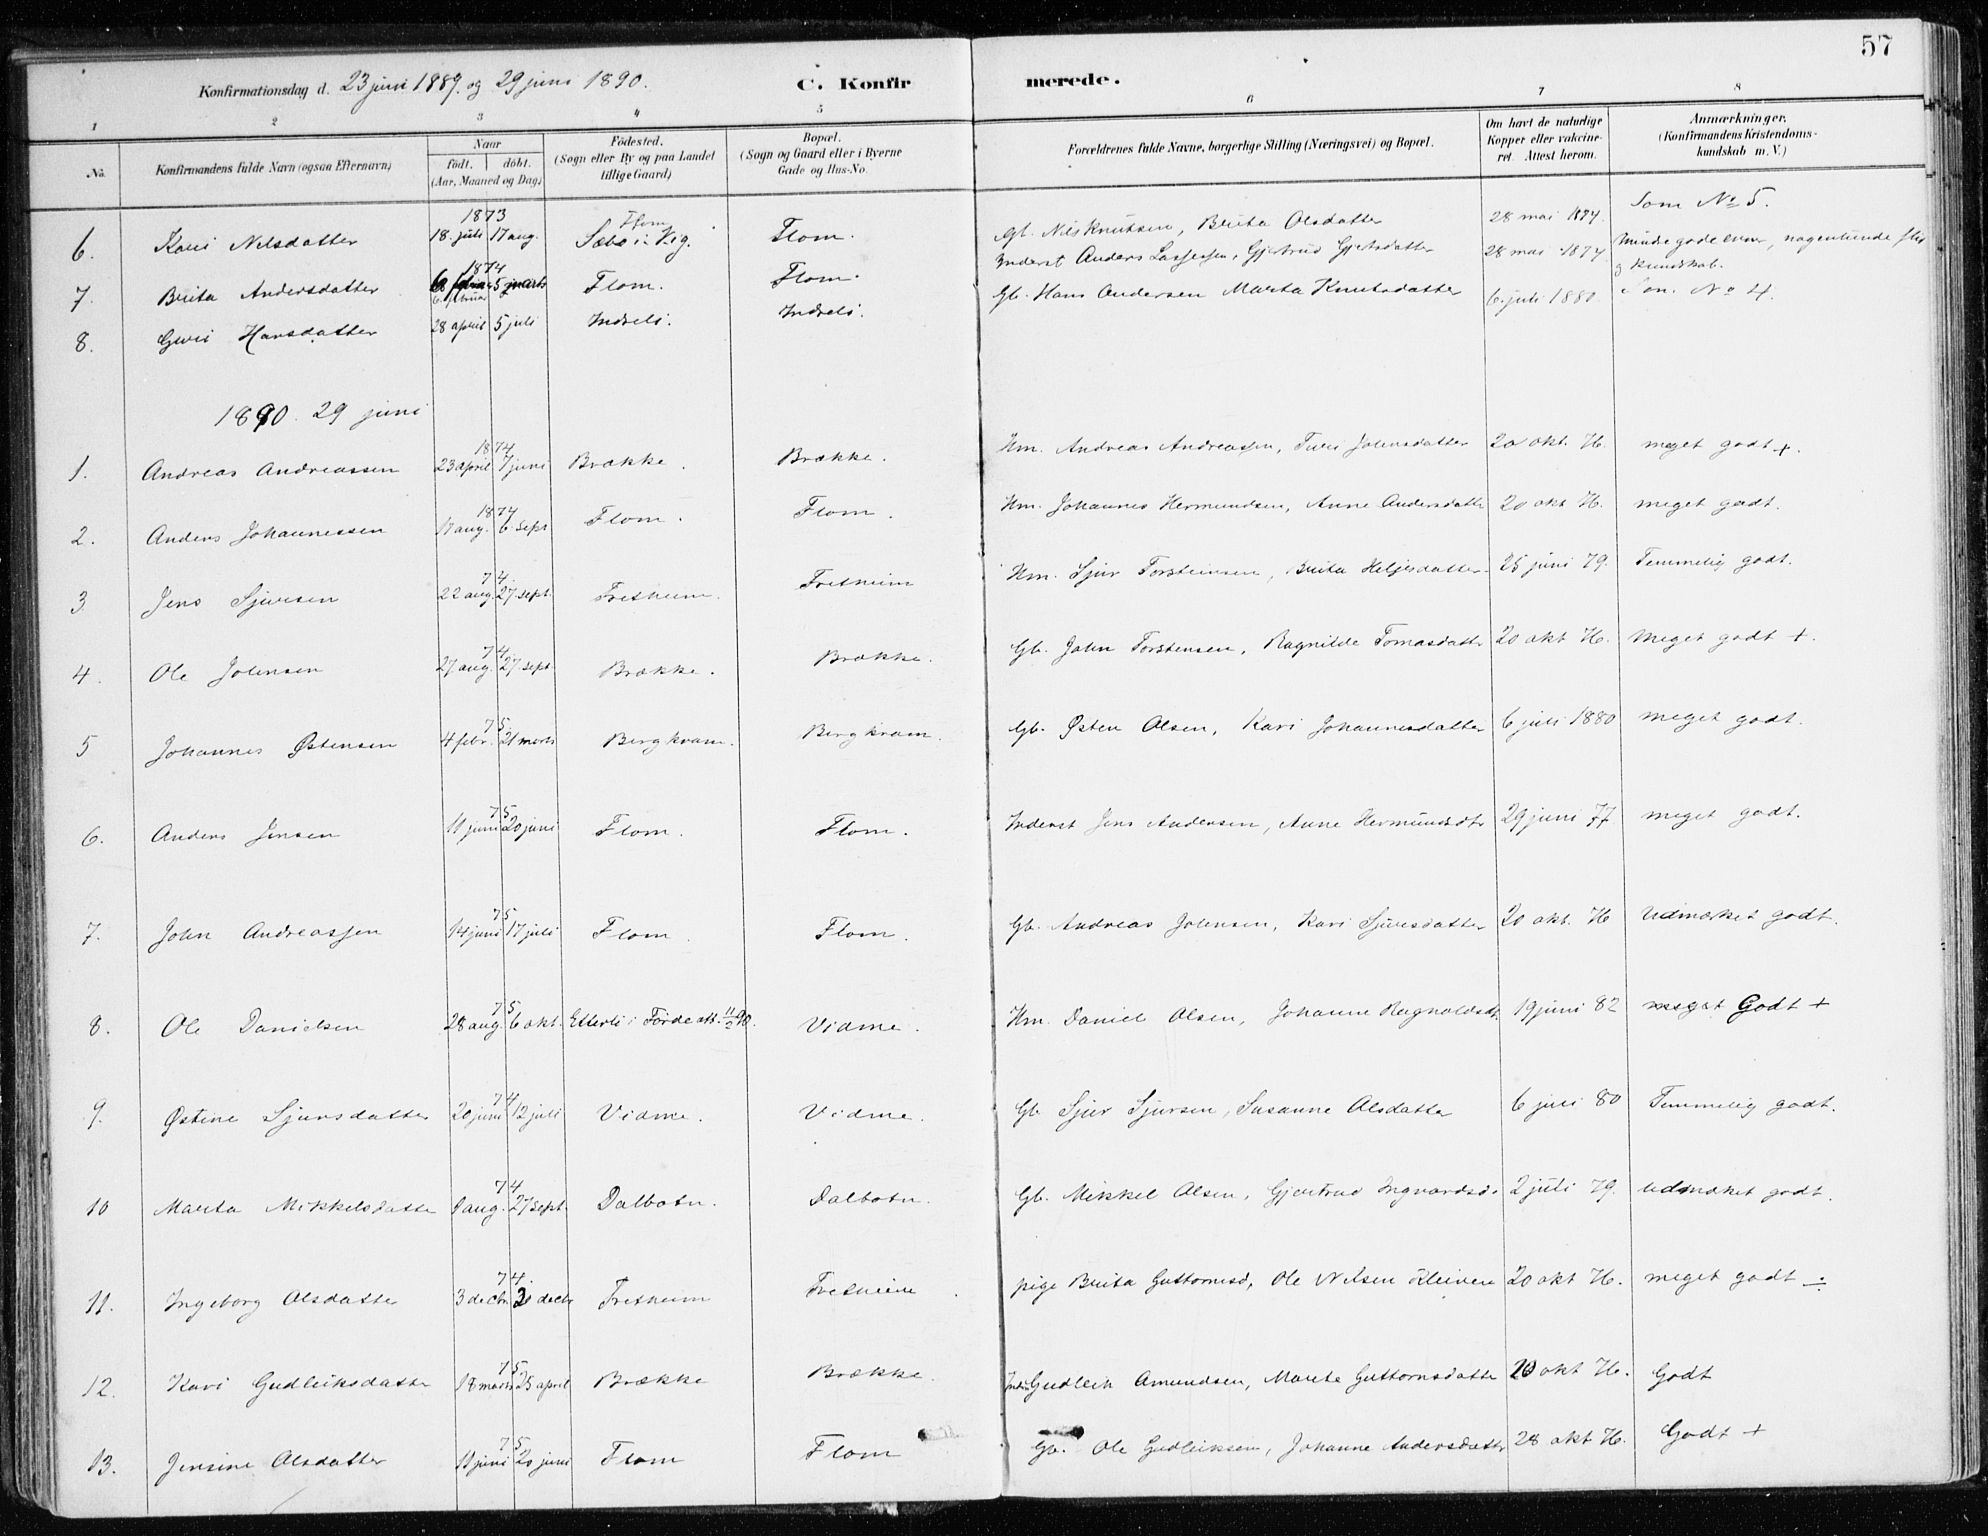 57
Konfirmationsdag d. 23 juni 1889. og 29 juni 1890. C. Konfirmerede.
1 2 3 4 5 6 7 8
No. Konfirmandens fulde Navn (ogsaa Efternavn) Naar født. døbt. (Aar, Maaned og Dag) Fødested. (Sogn eller By og paa Landet tillige Gaard) Bopæl. (Sogn og Gaard eller i Byerne Gade og Hus-No. Forældrenes fulde Navne, borgerlige Stilling (Næringsvei) og Bopæl. Om havt de naturlige Kopper eller vakcineret. Attest herom. Anmærkninger. (Konfirmandens Kristendomskundskab m. V.)
6. Kari Nilsdatter 1873 18. juli 17 aug. Flom. Gb. Nils Knutsen, Brita Olsdatter 28 mai 1874. Som No 5.
7. Brita Andersdatter 1874 5 marts Flom. Flom. Inderst Anders Lassesen, Gjertrud Gjertsdatter 28 mai 1874 Mindre gode evner, nogenlunde flid og kundskab.
8. Guri Hansdatter 28 april 5 juli Indreli. Indreli. Gb. Hans Andersen Marta Knutsdatter 6. juli 1880. Som No 4.
1890. 29 juni
1. Andreas Andreassen 1874 23 april 7 juni Brække. Brække. Hm. Andreas Andreassen, Turi Johnsdatter 20 okt. 76. meget godt +.
2. Anders Johannessen 1874 18 aug. 6 sept. Flom. Flom. Hm. Johannes Hermundsen, Anne Andersdatte 20 okt 76. meget godt.
3 Jens Sjursen 74. 22 aug. 27. sept. Fretheim. Fretheim Hm. Sjur Torsteinsen, Brita Heljesdatter. 25 juni 79. Temmelig godt.
4. Ole Johnsen 74. 27 aug. 27. sept. Brække. Brække. Gb. John Torstensen, Ragnilde Tomasdatt 20 okt 76. Meget godt +.
5 Johannes Østensen 75 4 febr. 21 marts Bergkvam. Bergkvam. Gb. Østen Olsen, Kari Johannesdatter 6 juli 1880 meget godt.
6. Anders Jensen 75 11 juni 20 juni Flom. Flom. Inderst Jens Andersen, Anne Hermundsdtr 29 juni 77. meget godt.
7. John Andreassen 75 14 juni 17 juli Flom. Flom. Gb. Andreas Johnsen, Kari Sjursdatter 20 okt. 76 Udmærket godt.
8. Ole Danielsen 75 28 aug. 6 okt. Etterli i Førde att. 11/2 90. Vidme. Hm. Daniel Olsen, Johanne Ragnoldsdt. 19 juni 82 meget Godt +
9. Østine Sjursdatter 74 20 juni 12 juli Vidme. Vidme. Gb. Sjur Sjursen, Susanne Olsdatter 6 juli 80 Temmelig godt.
10 Marta Mikkelsdatte 74 9 aug. 27 sept. Dalbotn. Dalbotn. Gb. Mikkel Olsen, Gjertrud Ingvardsd. 2 juli 79. udmærket godt.
11. Ingeborg Olsdatter 74. 3 decbr 20 decbr Fretheim Fretheim pige Brita Guttormsd, Ole Nilsen Kleivene 20 okt 76. meget godt ÷
12. Kari Gudleiksdatter 75 18 marts 25 april Brække Brække. Ind. Gudleik Amundsen, Marta Guttormsdatte 20 okt 76. Godt
13. Jensine Olsdatter 75 11 juni 20 juni Flom Flom Gb. Ole Gudleiksen, Johanne Andersdatter 28 okt 76. Godt +